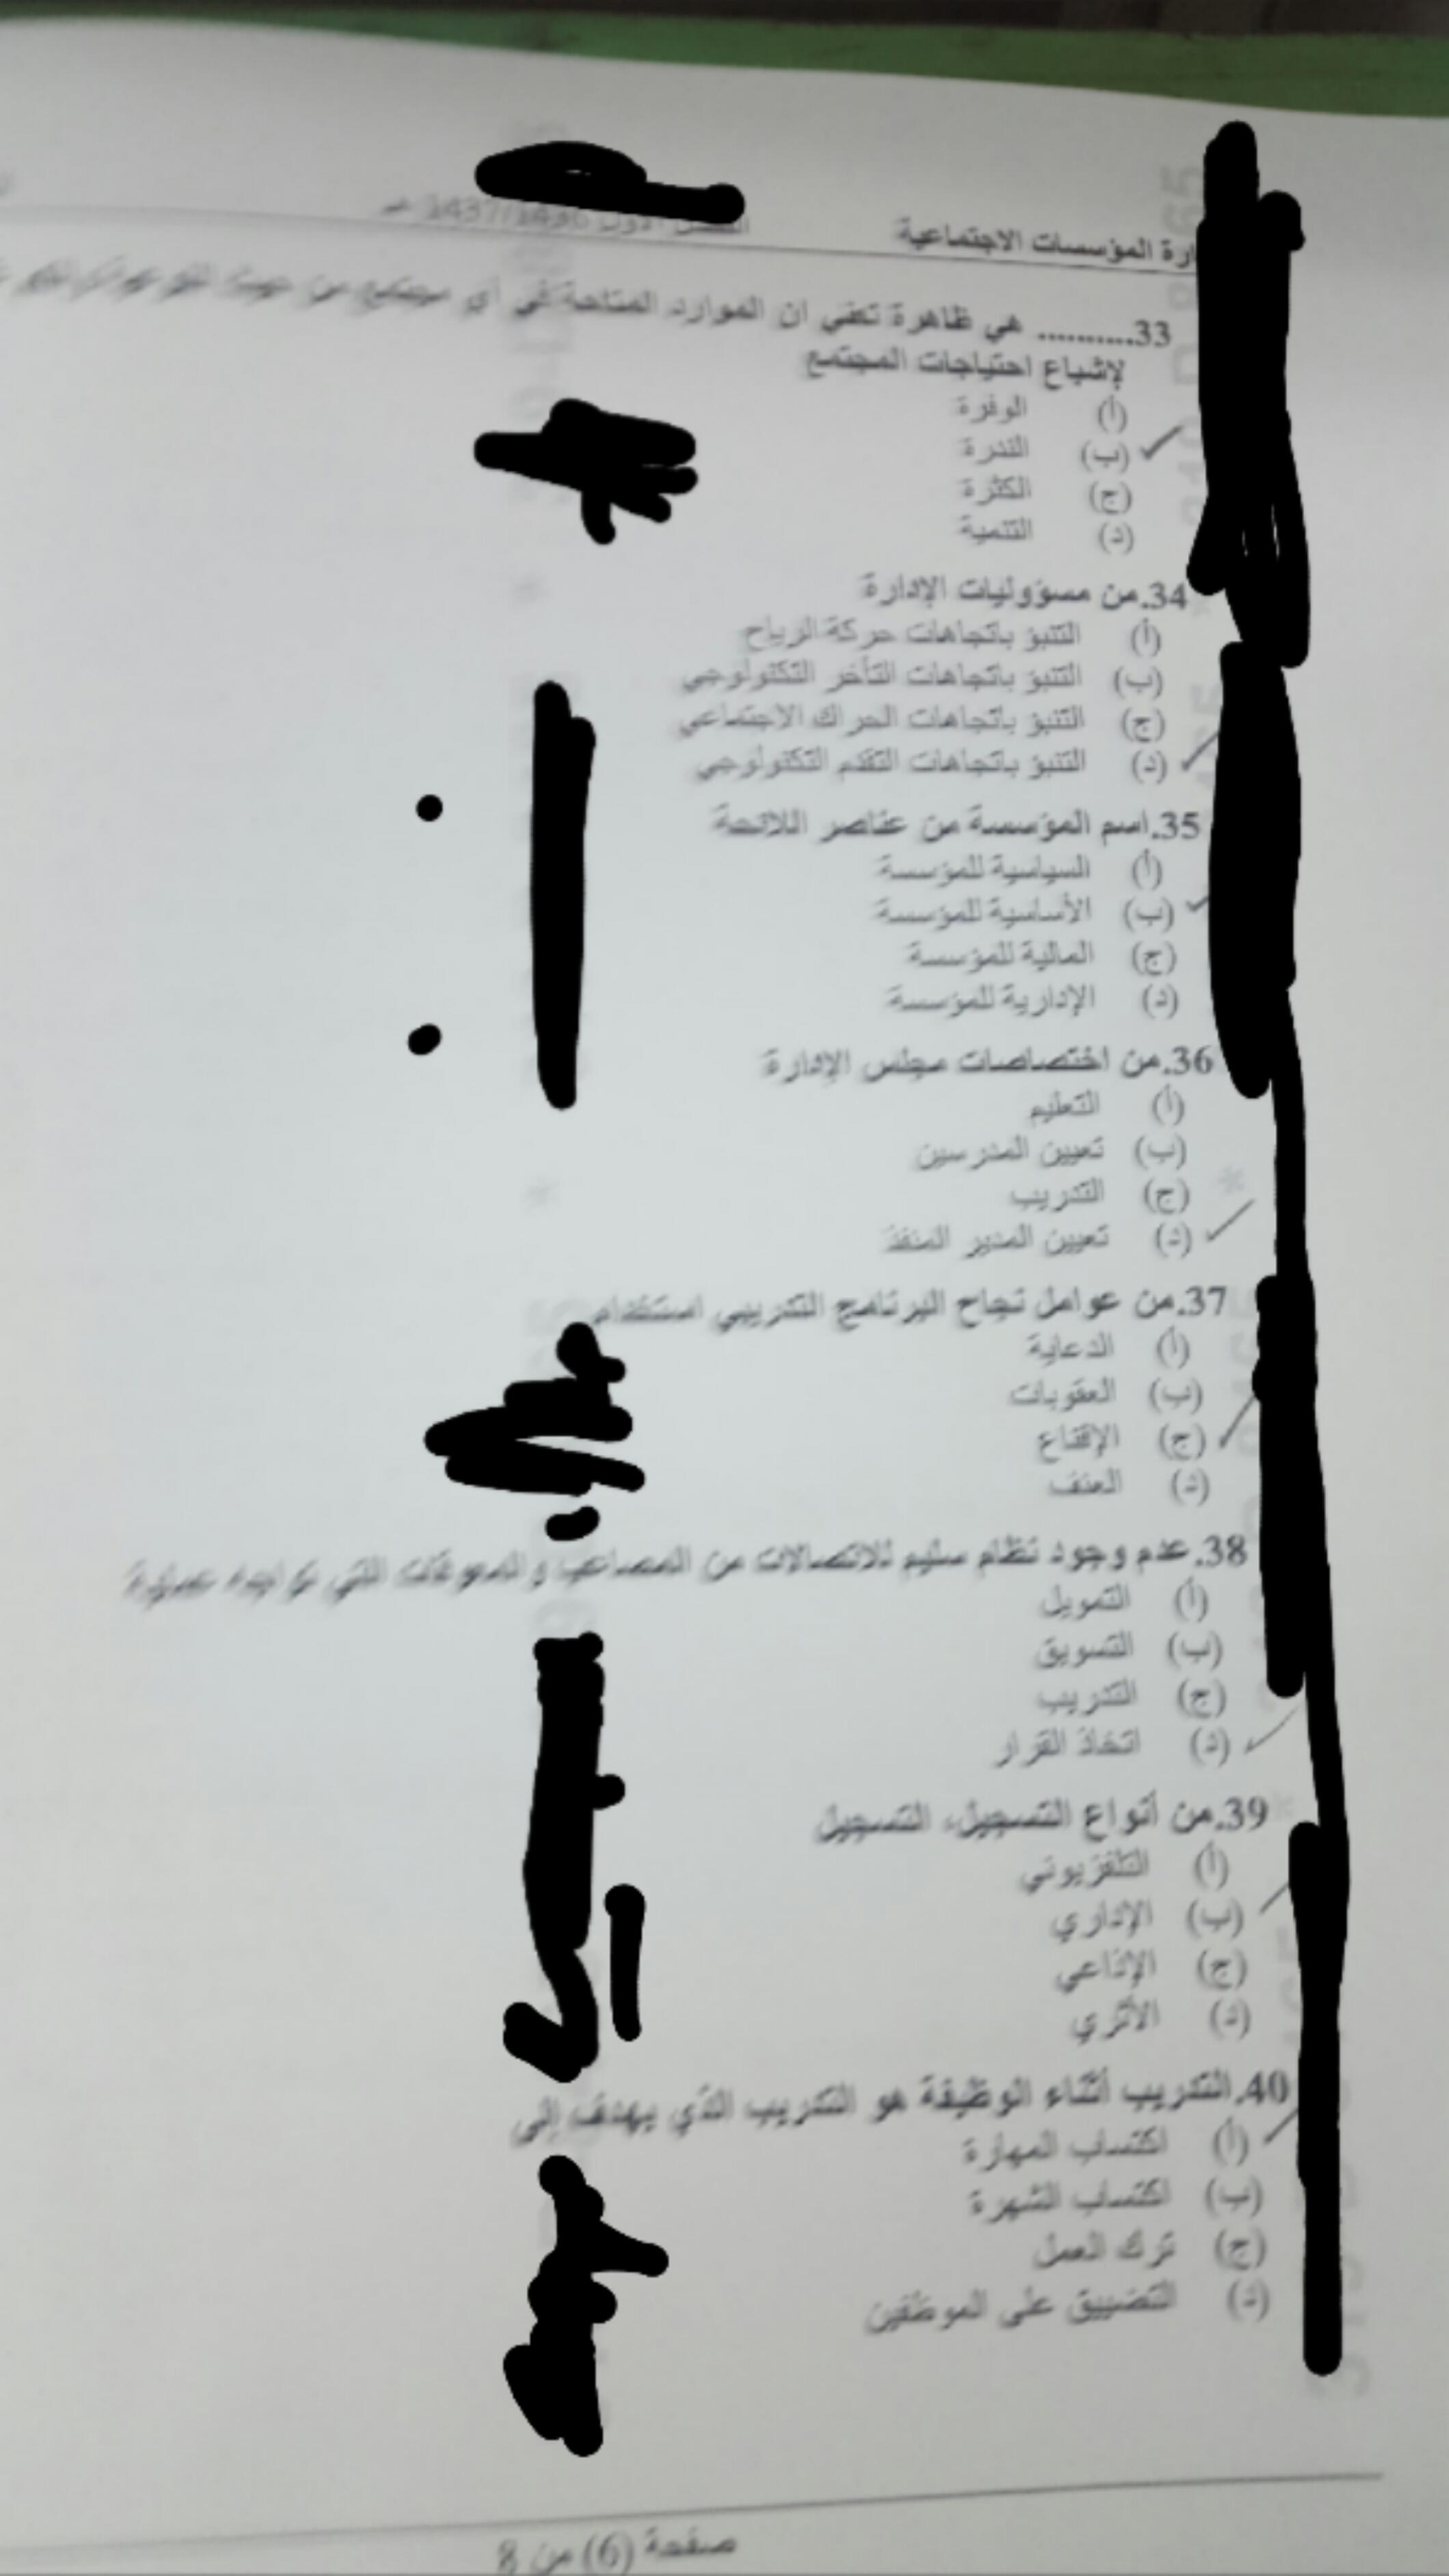 ارة المؤسسات الاجتماعية
الفصل الأول 1437/1436 هـ
33.......... هي ظاهرة تعني ان الموارد المتاحة في أي مجتمع من
لإشباع احتياجات المجتمع
(أ) الوفرة
(ب) الندرة
(ج) الكثرة
(د) التنمية
34.من مسؤوليات الإدارة
(أ) التنبؤ باتجاهات حركة الرياح
(ب) التنبؤ باتجاهات التأخر التكنولوجي
(ج) التنبؤ باتجاهات الحراك الاجتماعي
(د) التنبؤ باتجاهات التقدم التكنولوجي
35.اسم المؤسسة من عناصر اللائحة
(أ) السياسية للمؤسسة
(ب) الأساسية للمؤسسة
(ج) المالية للمؤسسة
(د) الإدارية للمؤسسة
36.من اختصاصات مجلس الإدارة
(أ) التعليم
(ب) تعيين المدرسين
(ج) التدريب
(د) تعيين المدير المنفذ
37.من عوامل نجاح البرنامج التدريبي استخدام
(أ) الدعاية
(ب) العقوبات
(ج) الإقناع
(د) العنف
38.عدم وجود نظام سليم للاتصالات من المصاعب والمعوقات التي تواجه عملية
(أ) التمويل
(ب) التسويق
(ج) التدريب
(د) اتخاذ القرار
39.من أنواع التسجيل، التسجيل
(أ) التلفزيوني
(ب) الإداري
(ج) الإذاعي
(د) الأثري
40.التدريب أثناء الوظيفة هو التدريب الذي يهدف إلى
(أ) اكتساب المهارة
(ب) اكتساب الشهرة
(ج) ترك العمل
(د) التضييق على الموظفين
صفحة (6) من 8